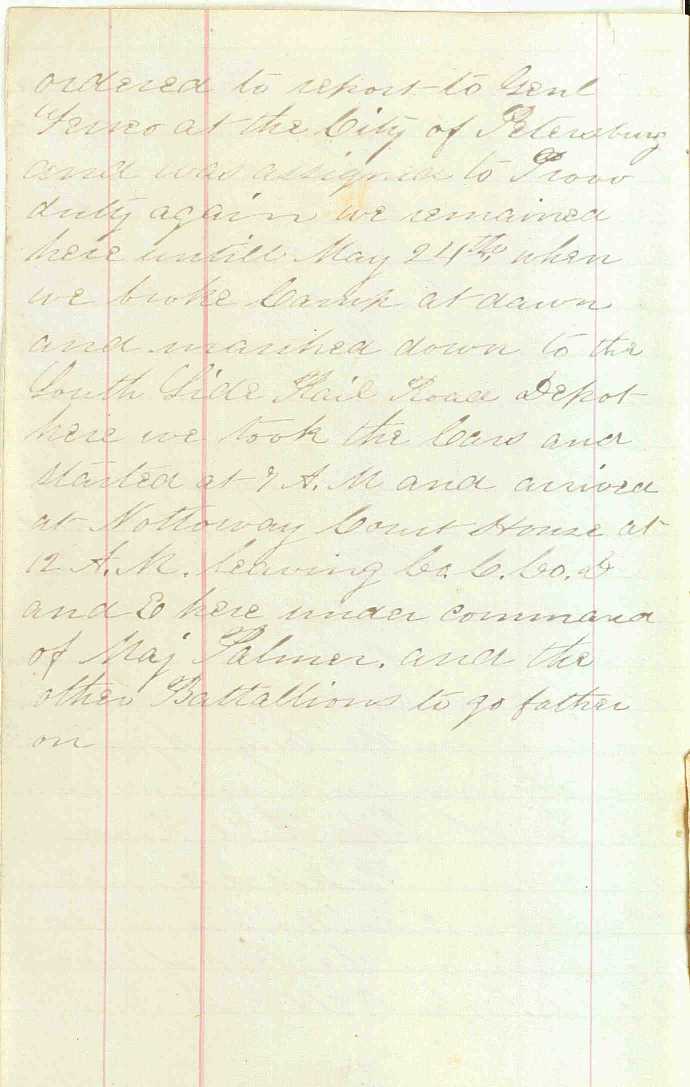 ordered to report to Genl
at the City of Petersburg
and was assigned to Provo
duty again we remained
here untill May 24th, when
we broke Camp at dawn
and marched down to the
South Side Rail Road Depot
here we took the Cars and
started at 7 A. M and arrived
at Nottoway Court House at
12 A. M. leaving Co. C. Co. D
and E here under command
of Maj Palmer. and the
other Battallions to go father
on